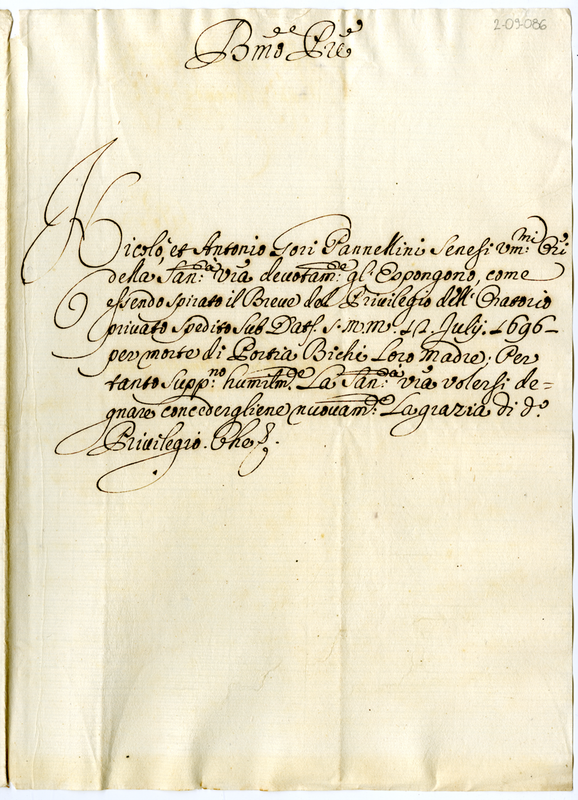 2-09-086
Bmo Pre
Nicolò, et Antonio Gori Pannellini Senesi Vm:mi Ori
della San:a Vra devotam:e gl' Espongono, come
essendo spirato il Breve del Privilegio dell' Oratorio
privato spedito sub Dat. S. M. M. 12. July. 1696-
per morte di Portia Bichi Loro Madre; Per
tanto supp:no humilm:e La San:a Vra volersi de=
gnare concedergliene nuovam:e La grazia di d:o
Privilegio. Che